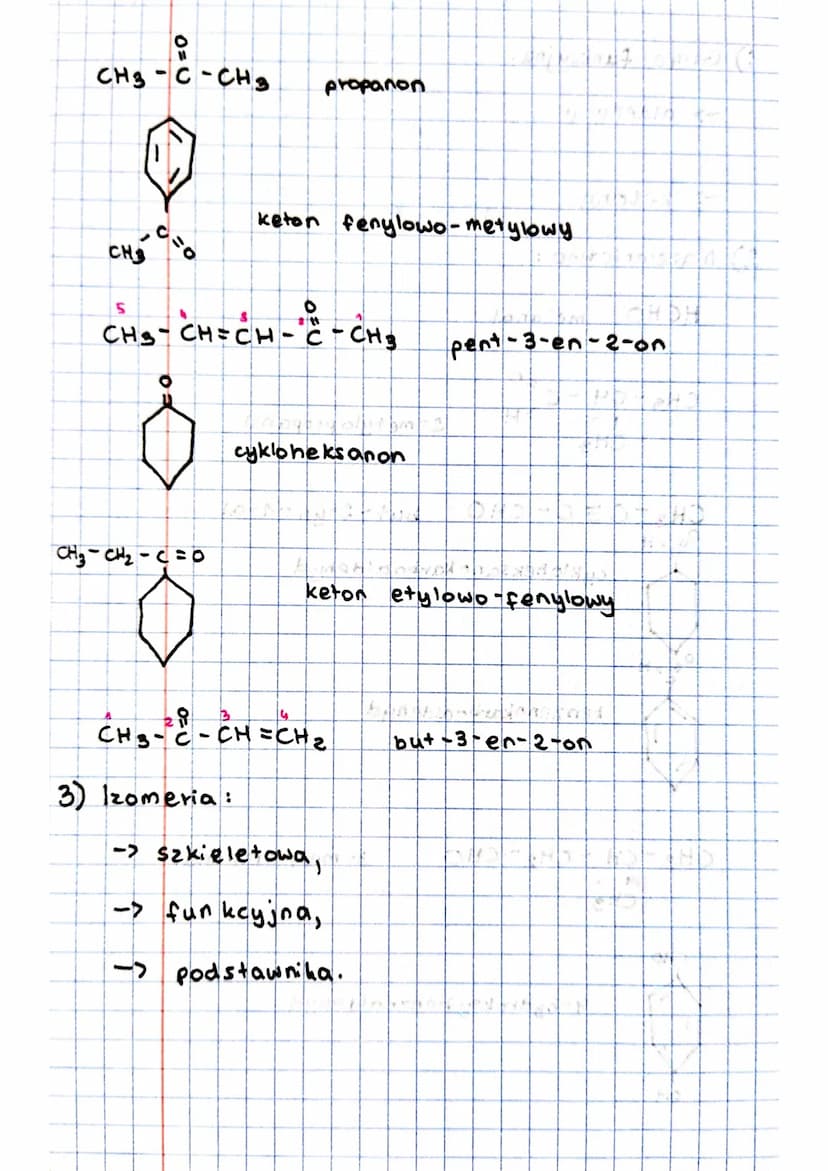 O
CH3 - C - CH3 propanon
C
CH3 O
keton fenylowo-metylowy
5 4 3 2 O 1
CH3 - CH = CH - C - CH3 pent-3-en-2-on
O
cykloheksanon
CH3 - CH2 - C = O
keton etylowo-fenylowy
1 2 O 3 4
CH3 - C - CH = CH2 but-3-en-2-on
3) Izomeria:
-> szkieletowa,
-> funkcyjna,
-> podstawnika.